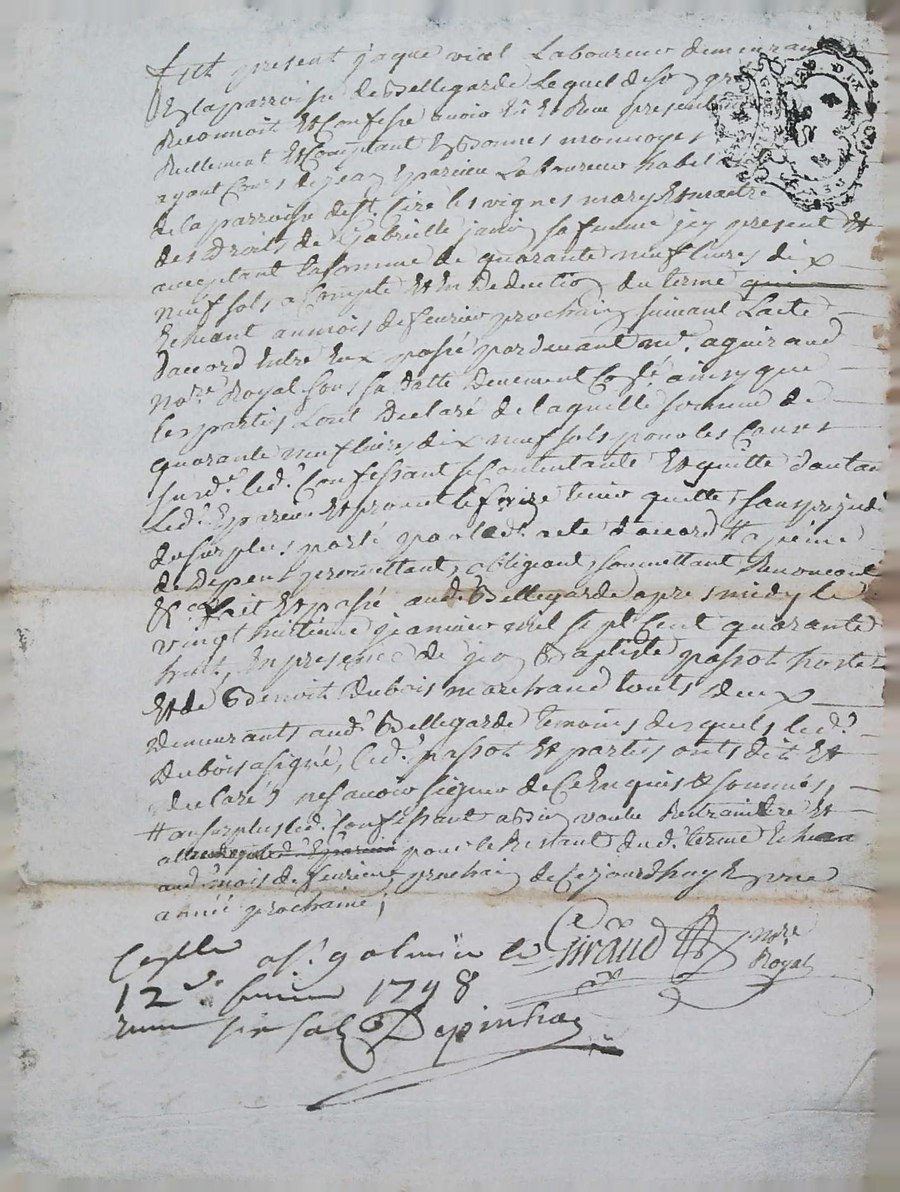 fut present jaque vial Laboureur demeurant
En laparroisse de Bellegarde Lequel de son gré
Reconnoit Et Confesse avoir Eu Et Reçu presentement
Reellement Et Comptant En Bonnes monnoyes
ayant Cours de jean Eparcieu Laboureur habitant
de la parroisse de St. Cire les vignes mary Et maitre
des Droits de Gabrielle janin sa femme jcy present Et
acceptant la somme de quarante neuf livres dix
neuf sols a Compte Et En Deduction du terme qui
Echeant au mois de fevrier prochain suivant Lacte
Daccord Entre Eux passé pardevant me. giraud
Nore. Royal sous sa datte Deuement Collé. ainsy que
les partis Lont Declaré de laquelle somme de
quarante neuf livres dix neuf sols pour les Causes
susd. led. Confessant se Contentante Et quitte dautant
Led. Eparcieu Et promet le faire tenir quitte sans prejud
du surplus porté par led. acte daccord # a peine
de Depens promettant, obligeant, soumettant Renonceant
&ca. fait Et passé aud. Bellegarde apres midy le
vingt huitieme jeanvier mil sept Cent quarante
huit, En presence de jean Baptiste passot hoste
Et de Benoit Dubois marchand touts deux
Demeurants aud. Bellegarde temoins desquels led.
Dubois a signé, led. passot Et partis onts dit Et
declaré ne savoir signer de Ce Enquis & sommés,
# au surplus led. Confessant a bien voulu Restraindre Et
pour le Restant dud. terme Echeant
aud. mois de fevrier prochain de Cejourdhuy En une
année prochaine,
Giraud Nore. Royal
a St. galmier le
12 fevrier 1748
six sols Depinhac